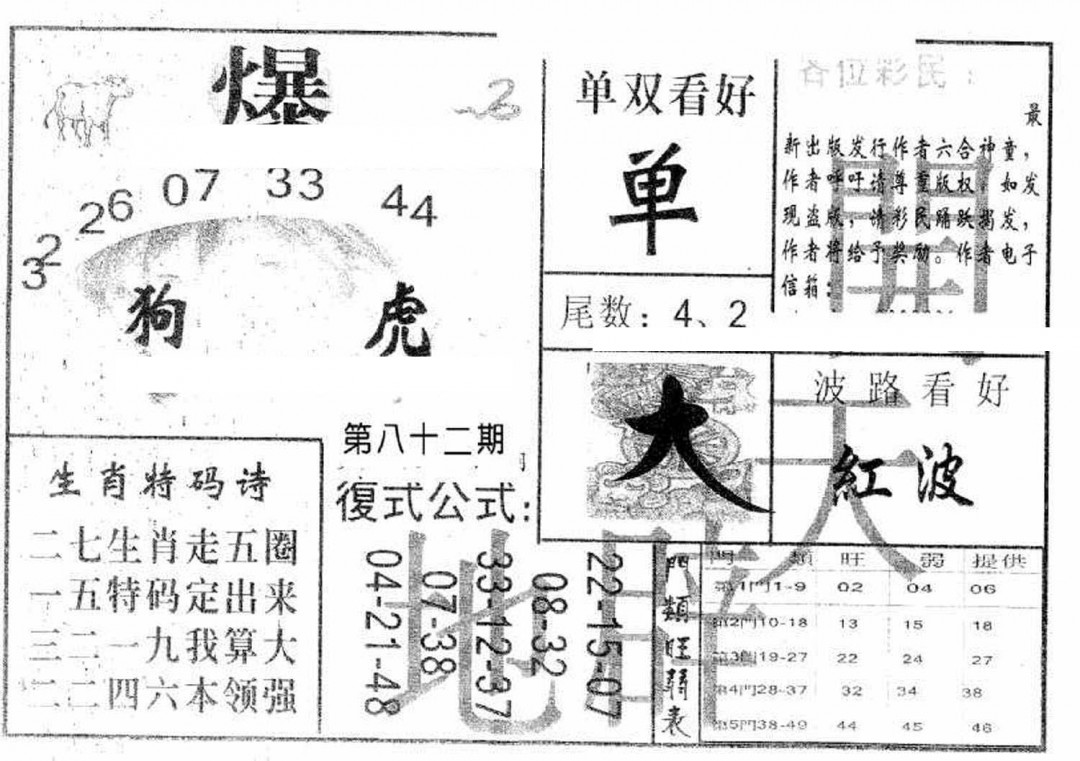 爆
26 07 33 44
32
狗 虎
单双看好
单
尾数：4、2
各位彩民：
最
新出版发行作者六合神童，
作者呼吁请尊重版权，如发
现盗版，请彩民踊跃揭发，
作者将给予奖励。作者电子
信箱：
開
大
波路看好
紅波
第八十二期
復式公式：
04-21-48
07-38
33-12-37
08-32
22-15-07
生肖特码诗
二七生肖走五圈
一五特码定出来
三二一九我算大
二二四六本领强
門類旺弱表
門 類 旺 弱 提供
第1門1-9 02 04 06
第2門10-18 13 15 18
第3門19-27 22 24 27
第4門28-37 32 34 38
第5門38-49 44 45 46
天
地